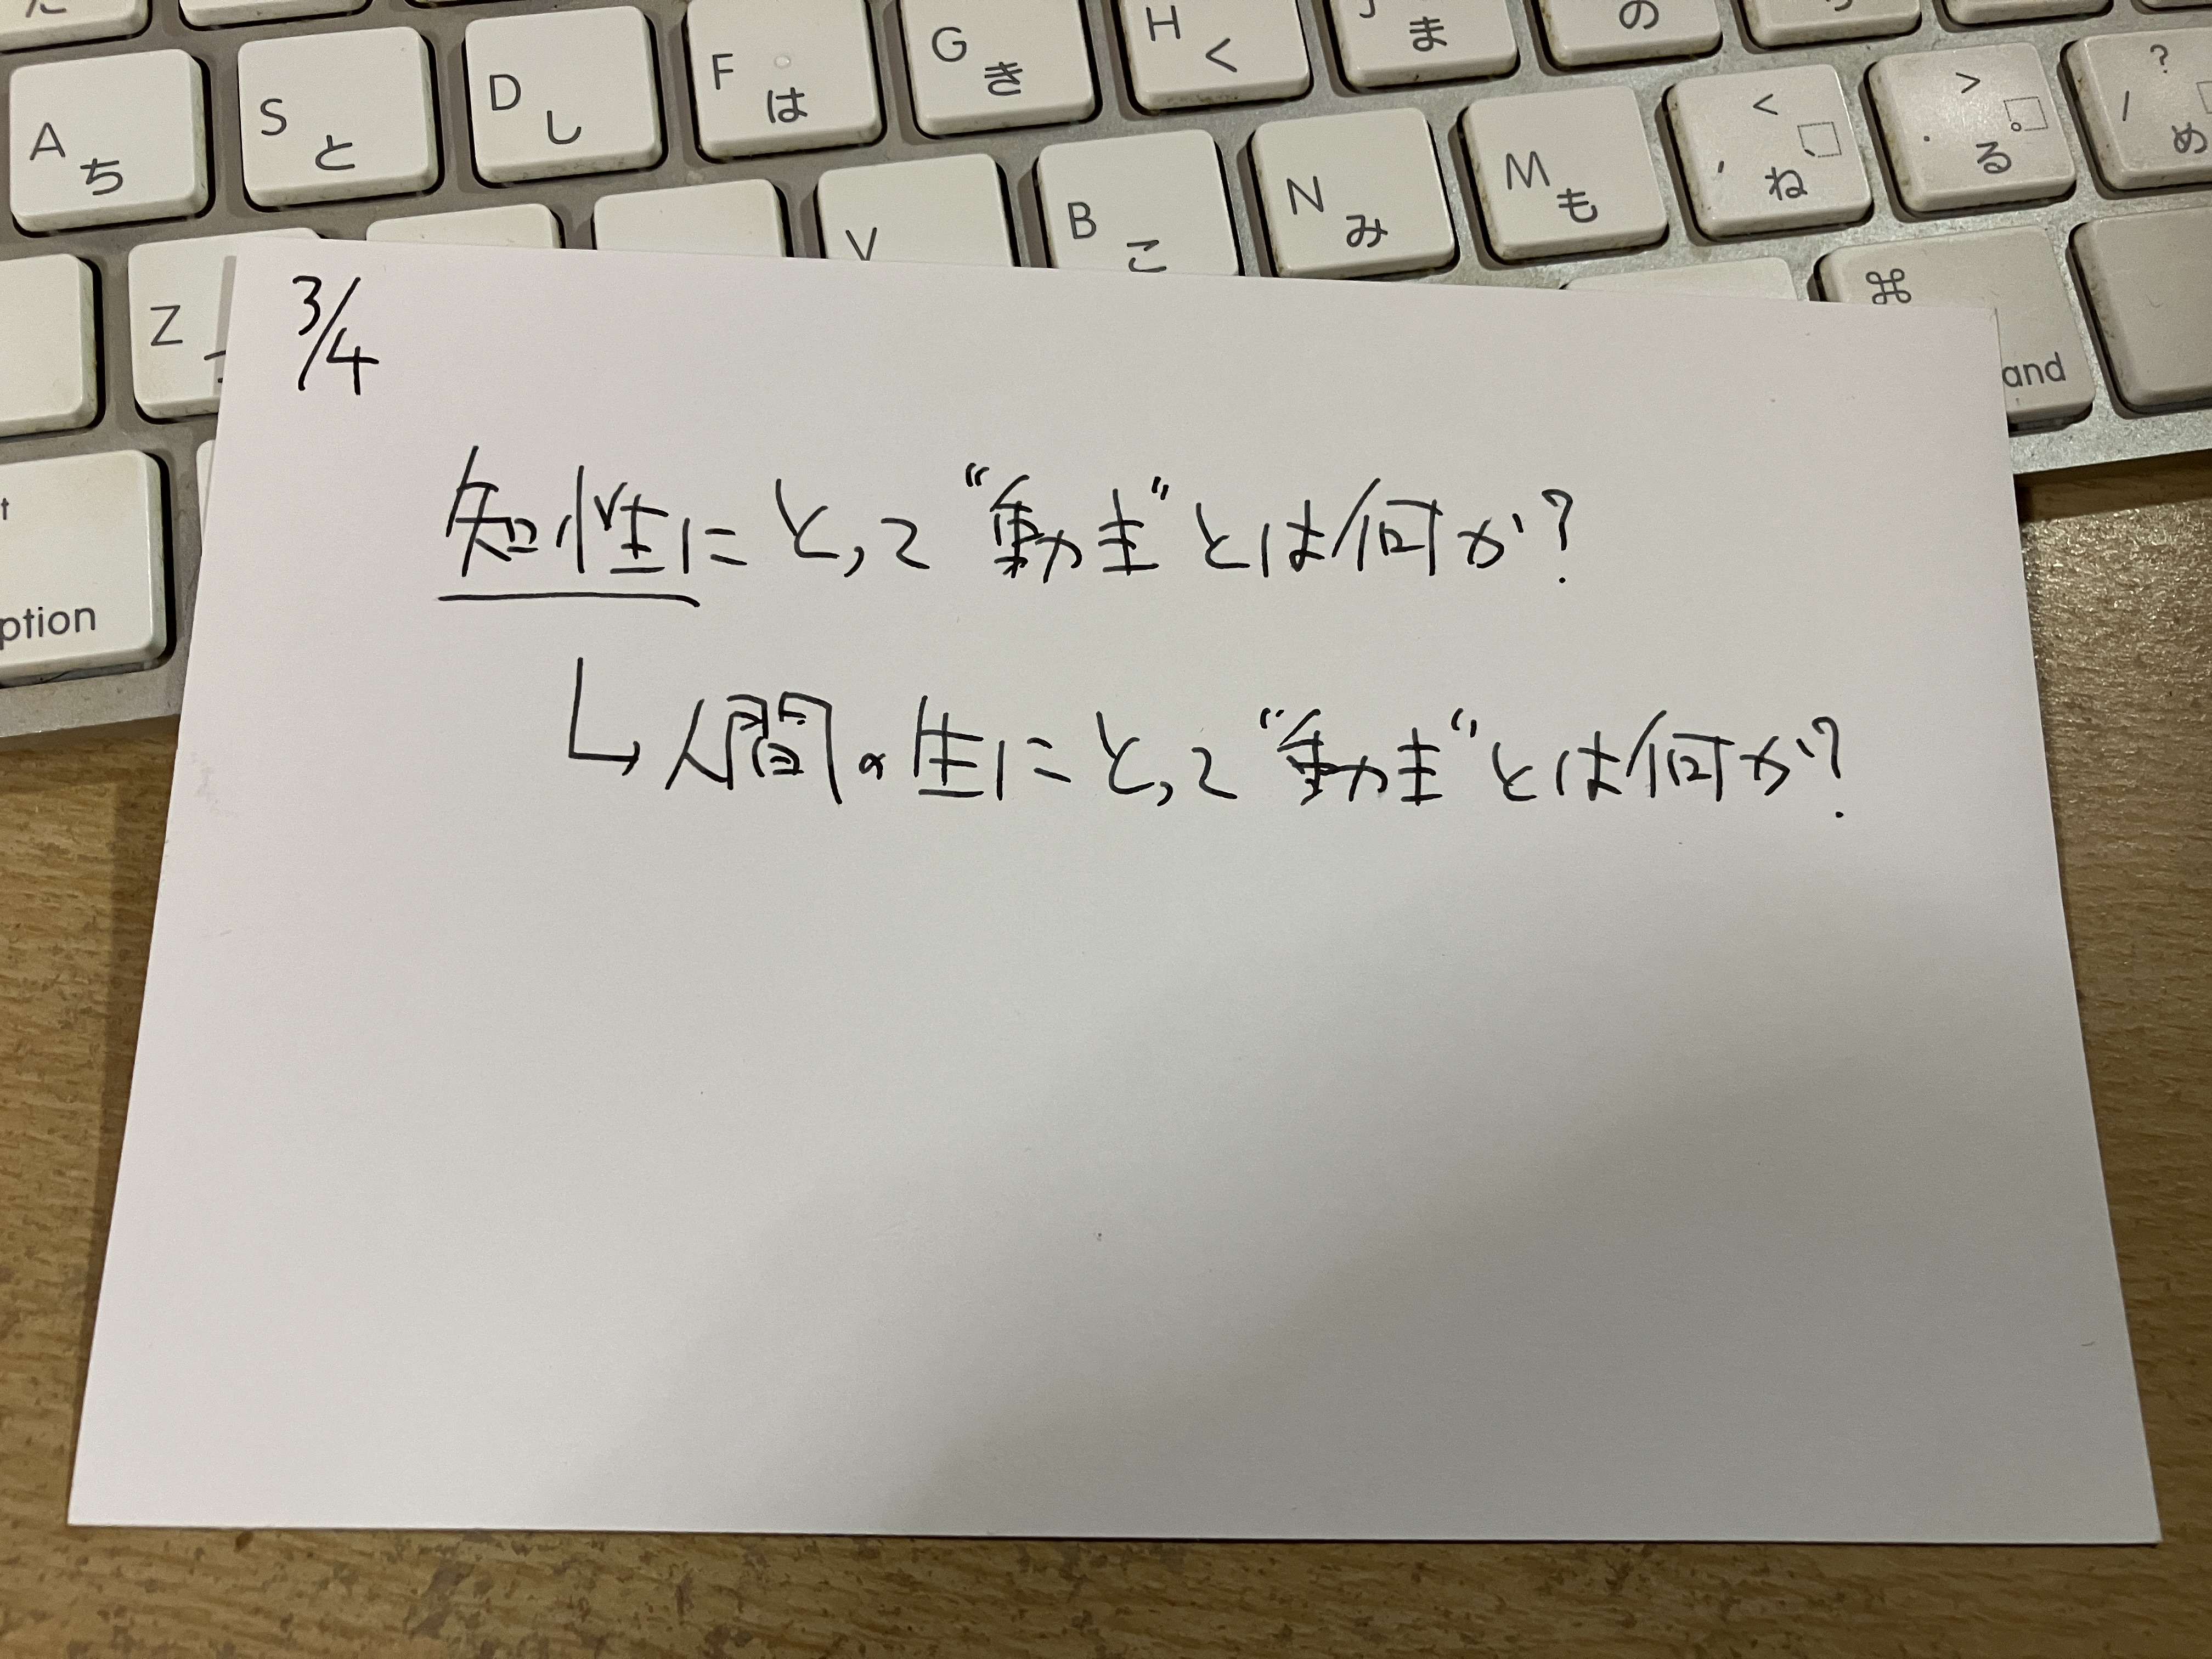 A ち S と D し F は G き H く ま の
Z V B こ N み M も < , 、 ね > . 。 る ? / め
⌘
and
ption
3/4
知性にとって“動主”とは何か?
人間の生にとって“動主”とは何か?